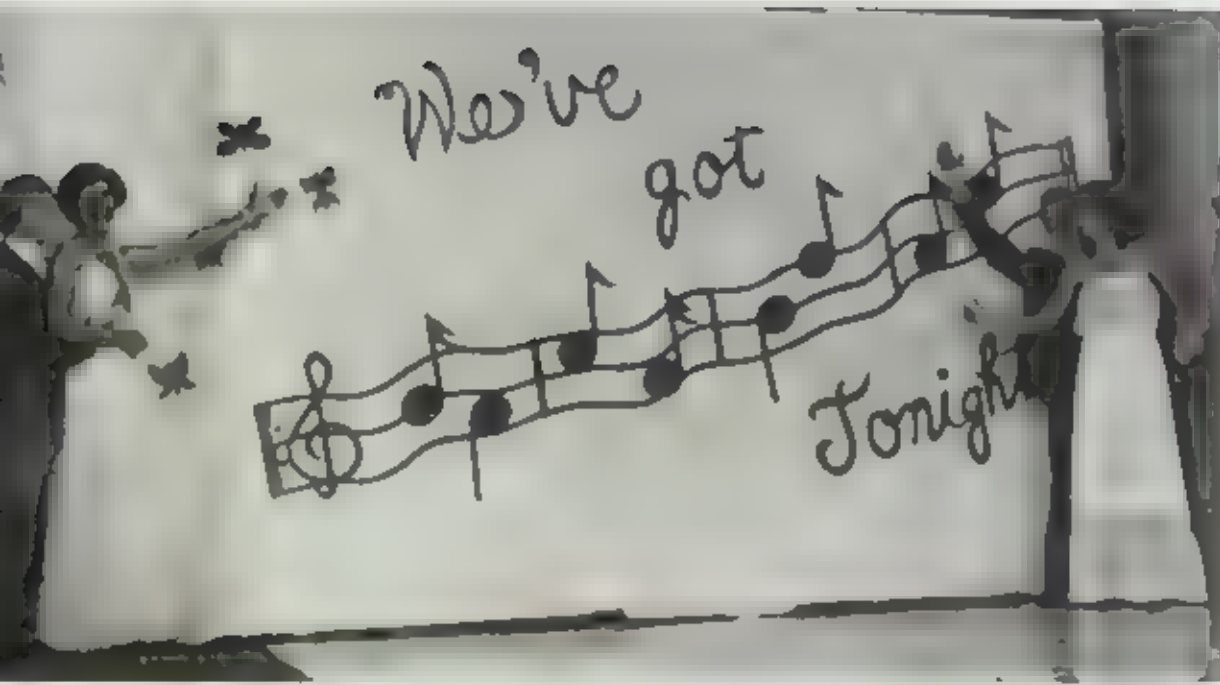 We've
got
Tonight